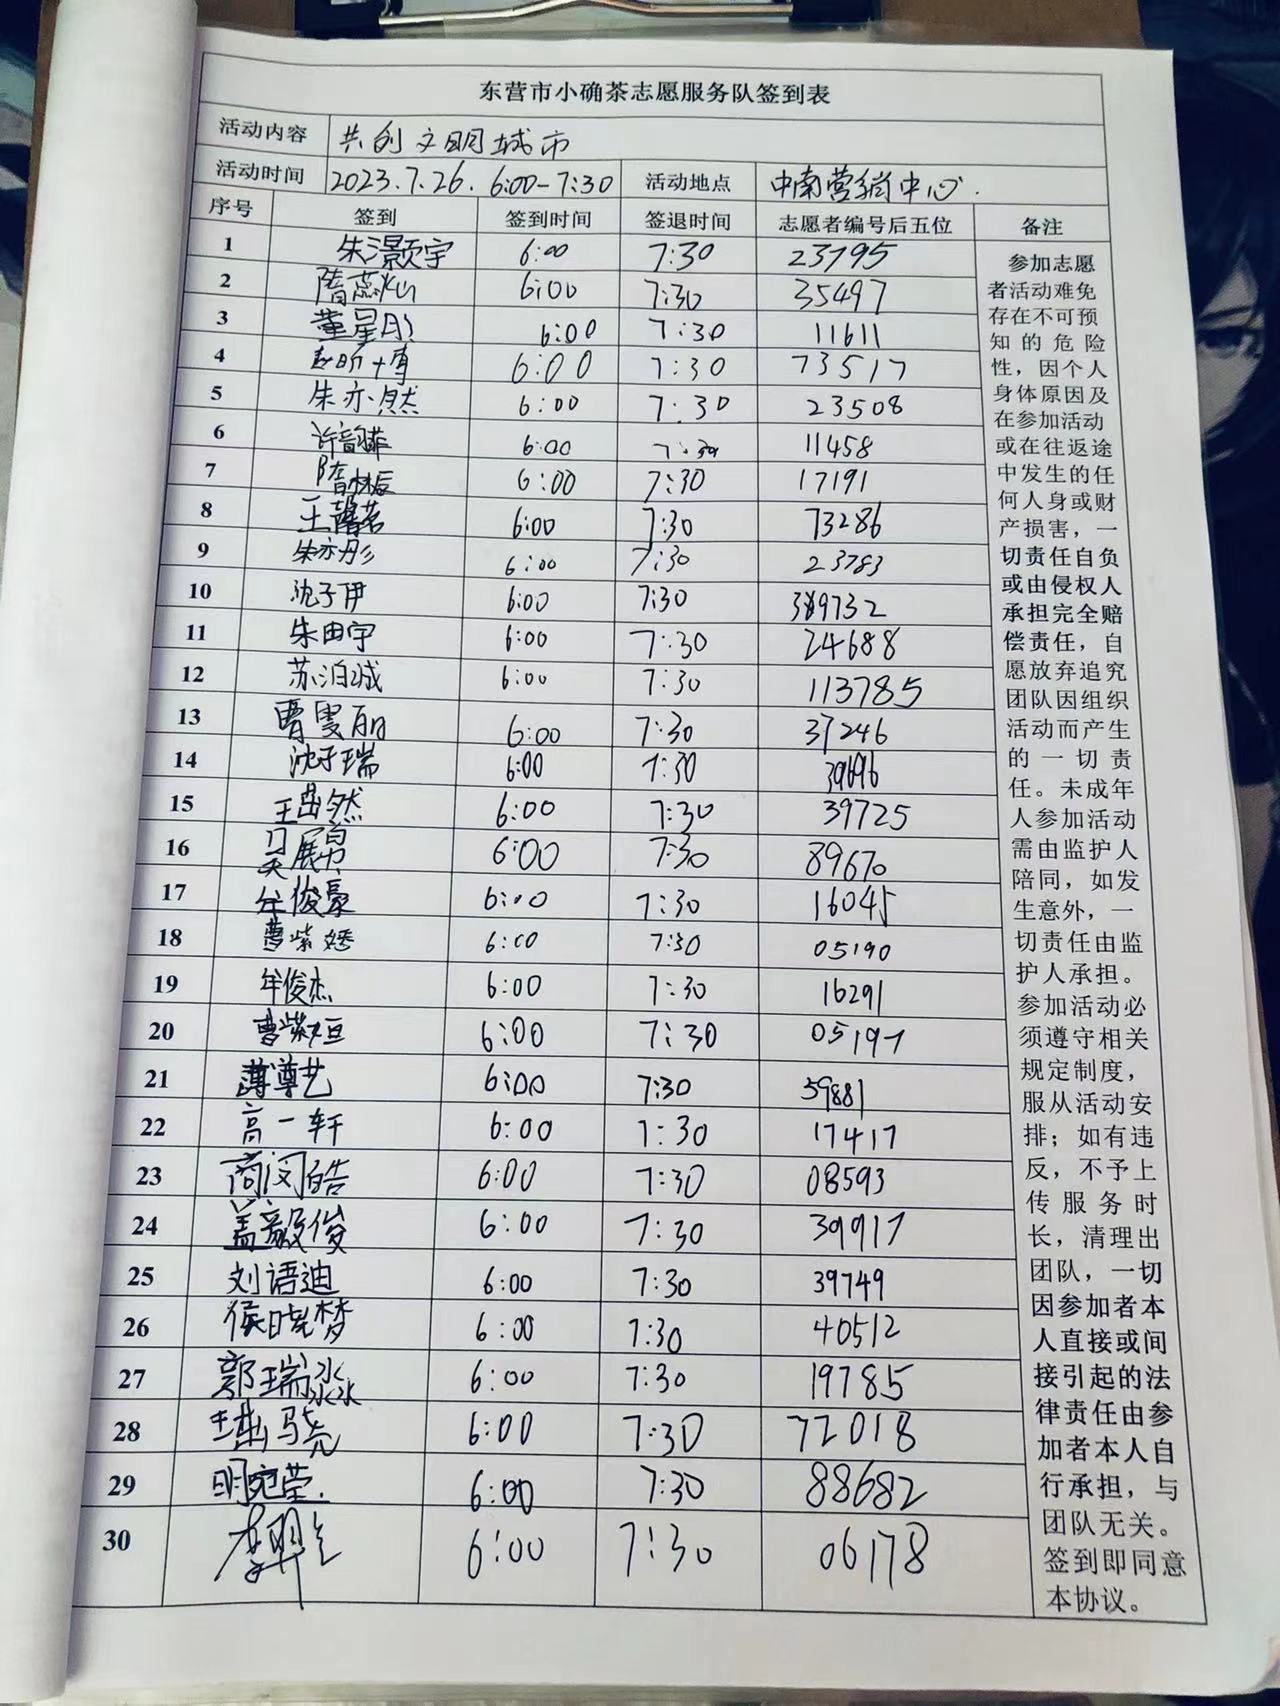 东营市小确茶志愿服务队签到表
活动内容 共创文明城市
活动时间 2023.7.26. 6:00-7:30 活动地点 中南营销中心.
序号 签到 签到时间 签退时间 志愿者编号后五位 备注
1 朱灏宇 6:00 7:30 23795
2 隋蕊灿 6:00 7:30 35497
3 董星彤 6:00 7:30 11611
4 6:00 7:30 73517
5 朱亦然 6:00 7:30 23508
6 许 6:00 7:30 11458
7 隋林辰 6:00 7:30 17191
8 王馨茗 6:00 7:30 73286
9 朱亦彤 6:00 7:30 23783
10 沈子伊 6:00 7:30 9732
11 朱由宇 6:00 7:30 24688
12 苏泊诚 6:00 7:30 113785
13 曹雯丽 6:00 7:30 37246
14 沈子瑞 6:00 7:30 39696
15 王 然 6:00 7:30 39725
16 吴展勇 6:00 7:30 89670
17 牟俊豪 6:00 7:30 16045
18 曹紫嫣 6:00 7:30 05190
19 牟俊杰 6:00 7:30 16291
20 曹紫姮 6:00 7:30 05197
21 薄尊艺 6:00 7:30 59881
22 高一轩 6:00 7:30 17417
23 商闵皓 6:00 7:30 08593
24 盖毅俊 6:00 7:30 39917
25 刘语迪 6:00 7:30 39749
26 侯晓梦 6:00 7:30 40512
27 郭瑞淼 6:00 7:30 19785
28 骁 6:00 7:30 72018
29 明宛莹. 6:00 7:30 88682
30 6:00 7:30 06178
参加志愿
者活动难免
存在不可预
知的危险
性，因个人
身体原因及
在参加活动
或在往返途
中发生的任
何人身或财
产损害，一
切责任自负
或由侵权人
承担完全赔
偿责任，自
愿放弃追究
团队因组织
活动而产生
的一切责
任。未成年
人参加活动
需由监护人
陪同，如发
生意外，一
切责任由监
护人承担。
参加活动必
须遵守相关
规定制度，
服从活动安
排；如有违
反，不予上
传服务时
长，清理出
团队，一切
因参加者本
人直接或间
接引起的法
律责任由参
加者本人自
行承担，与
团队无关。
签到即同意
本协议。